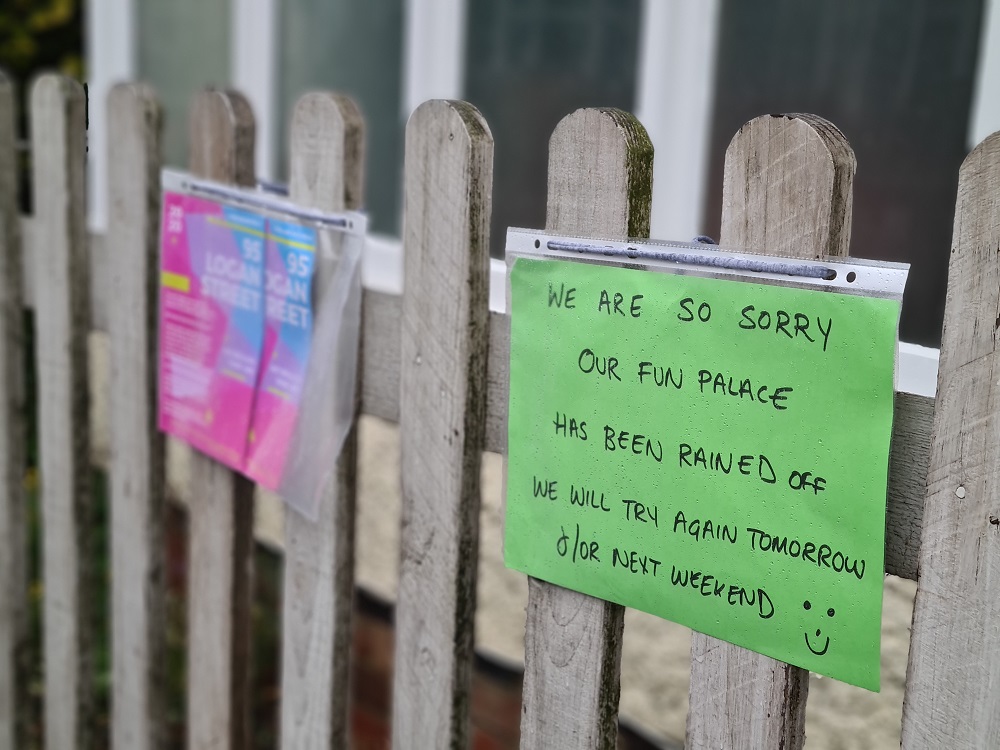 20
20
95
LOGAN
STREET
95
OGAN
REET
WE ARE SO SORRY
OUR FUN PALACE
HAS BEEN RAINED OFF
WE WILL TRY AGAIN TOMORROW
&/OR NEXT WEEKEND